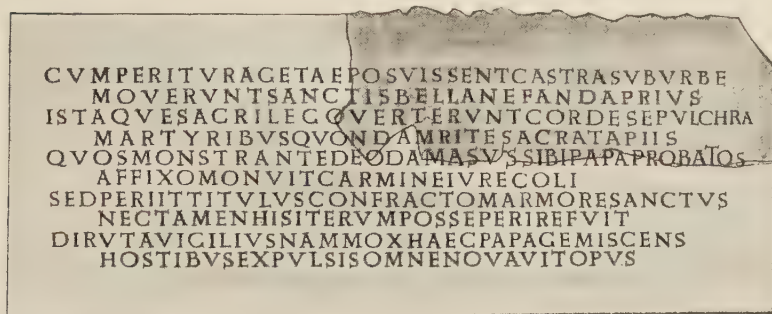 CVMPERITVRAGETAEPOSVISSENTCASTRASVBVRBE
MOVERVNTSANCTISBELLANEFANDAPRIVS
ISTAQVESACRILEGOVERTERVNTCORDESEPVLCHRA
MARTYRIBVSQVONDAMRITESACRATAPIIS
QVOSMONSTRANTEDEODAMASVSSIBIPAPAPROBATOS
AFFIXOMONVITCARMINEIVRECOLI
SEDPERIITTITVLVSCONFRACTOMARMORESANCTVS
NECTAMENHISITERVMPOSSEPERIREFVIT
DIRVTAVIGILIVSNAMMOXHAECPAPAGEMISCENS
HOSTIBVSEXPVLSISOMNENOVAVITOPVS